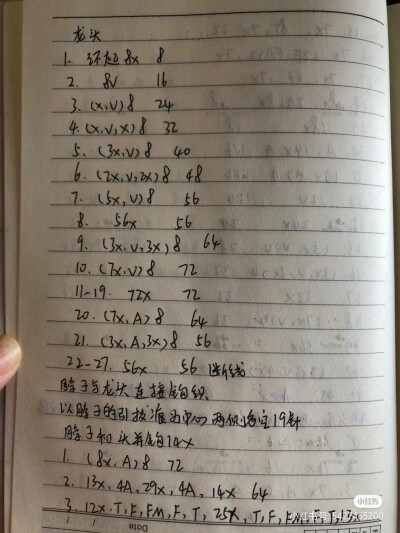 龙头
1. 环起8x 8
2. 8V 16
3. (x,V)8 24
4. (x,V,x)8 32
5. (3x,V)8 40
6. (2x,V,2x)8 48
7. (5x,V)8 56
8. 56x 56
9. (3x,V,3x)8 64
10. (7x,V)8 72
11-19. 72x 72
20. (7x,A)8 64
21. (3x,A,3x)8 56
22-27. 56x 56
脖子与龙头直接钩织
以脖子的引拔 为中心 两侧 19针
脖子和头并钩14x
1. (8x,A)8 72
2. 13x,4A,29x,4A,14x 64
3. 12x,T,F,FM,F,T,25x,T,F,FM,F,T,
Date
小红书